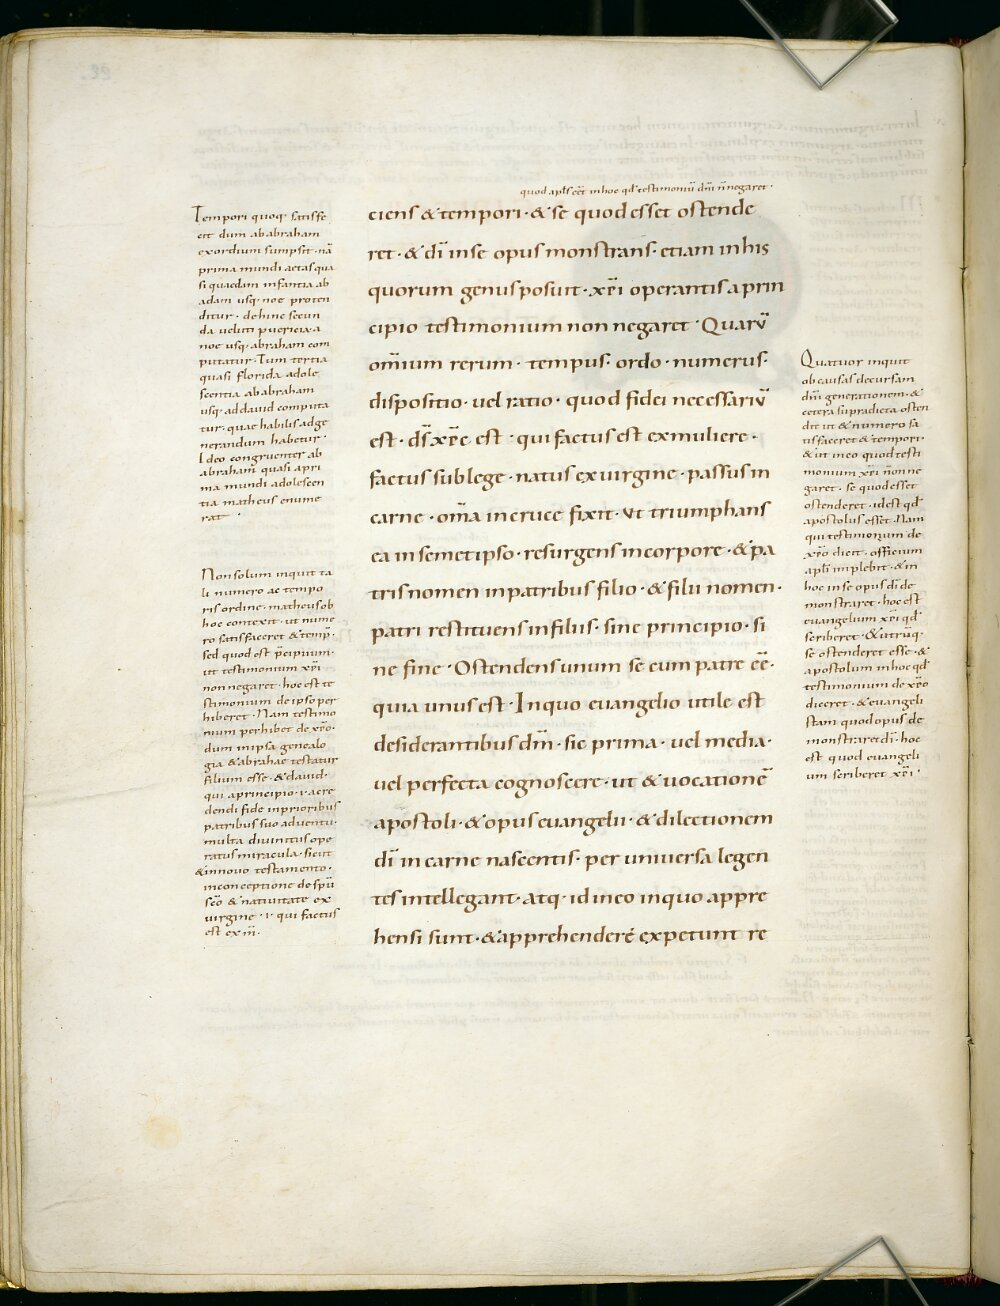 quod apl̄s eēt in hoc qd̄ testimoniū dn̄i n̄ negaret·
ciens & tempori· & se quod esset ostende
ret· & dī in se opus monstrans· etiam in his
quorum genus posuit· xp̄i operantis a prin
cipio testimonium non negaret· Quarū
omīum rerum· tempus· ordo· numerus·
dispositio· vel ratio· quod fidei necessariū
est· ds̄ xp̄c est· qui factus est ex muliere·
factus sub lege· natus ex virgine· passus in
carne· om̄a in cruce fixit· Vt triumphans
ea in semet ipso· resurgens in corpore· & pa
tris nomen in patribus filio· & filii nomen·
patri restituens in filiis· sine principio· si
ne fine· Ostendens unum se cum patre eē·
quia unus est· In quo euangelio utile est
desiderantibus dm̄· sic prima· uel media·
uel perfecta cognoscere· ut & uocationē
apostoli· & opus euangelii· & dilectionem
dī in carne nascentis· per uniuersa legen
tes intellegant· atq· id in eo in quo appre
hensi sunt· & apprehendere expetunt re
Tempori quoq· satisfe
cit dum ab abraham
exordium sumpsit· nā
prima mundi aetas qua
si quaedam infantia ab
adam usq· noe proten
ditur· dehinc secun
da ueluti puericia a
noe usq· abraham com
putatur· Tum tertia
quasi florida adole
scentia ab abraham
usq· ad dauid computa
tur· quae habilis ad ge
nerandum habetur·
Ideo congruenter ab
abraham quasi a pri
ma mundi adolescen
tia matheus enume
rat·
Non solum inquit ta
li numero ac tempo
ris ordine· matheus ob
hoc contexit· ut nume
ro satisfaceret & temp̄·
sed quod est p̄cipuum·
ut testimonium xp̄i
non negaret· hoc est te
stimonium de ipso per
hiberet· Nam testimo
nium perhibet de xp̄o·
dum in ipsa genealo
gia & abrahae testatur
filium esse· & dauid·
qui a principio· i· a cre
dendi fide in prioribus
patribus suo aduentu·
multa diuinitus ope
ratus miracula· sicut
& in nouo testamento·
in conceptione de sp̄u
sc̄o & natiuitate ex
uirgine· i· qui factus
est ex m̄·
Quatuor inquit
ob causas decursam
dn̄i generationem· &
cetera supradicta osten
dit ut & numero sa
tisfaceret & tempori·
& ut in eo quod testi
monium xp̄i non ne
garet· se quod esset
ostenderet· id est qd̄
apostolus esset· Nam
qui testimonium de
xp̄o dicit· officium
apl̄i implebit· & in
hoc in se opus dī de
monstraret· hoc est
euangelium xp̄i qd̄
scriberet· & utruq·
se ostenderet esse· &
apostolum in hoc qd̄
testimonium de xp̄o
diceret· & euangeli
stam quod opus de
monstraret dī· hoc
est quod euangeli
um scriberet xp̄i·